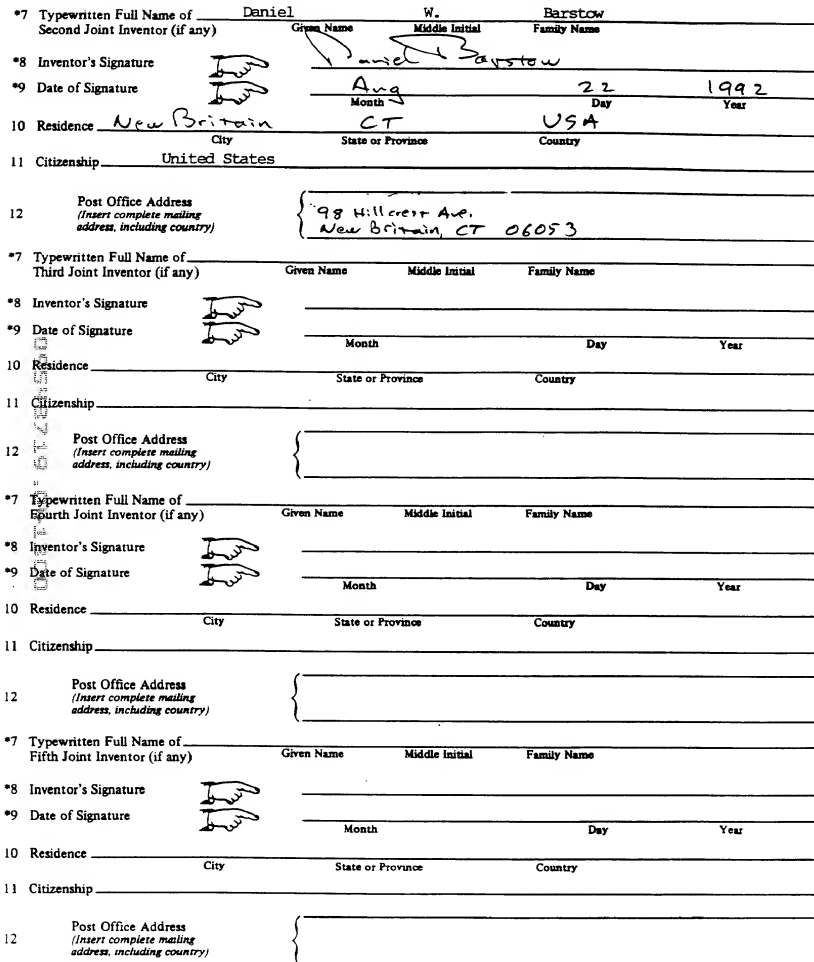 *7 Typewritten Full Name of Daniel W. Barstow
Second Joint Inventor (if any) Given Name Middle Initial Family Name
*8 Inventor's Signature Daniel Barstow
*9 Date of Signature Aug 22 1992
Month Day Year
10 Residence New Britain CT USA
City State or Province Country
11 Citizenship United States
Post Office Address
12 (Insert complete mailing 98 Hillcrest Ave.
address, including country) New Britain, CT 06053
*7 Typewritten Full Name of
Third Joint Inventor (if any) Given Name Middle Initial Family Name
*8 Inventor's Signature
*9 Date of Signature
Month Day Year
10 Residence
City State or Province Country
11 Citizenship
Post Office Address
12 (Insert complete mailing
address, including country)
*7 Typewritten Full Name of
Fourth Joint Inventor (if any) Given Name Middle Initial Family Name
*8 Inventor's Signature
*9 Date of Signature
Month Day Year
10 Residence
City State or Province Country
11 Citizenship
Post Office Address
12 (Insert complete mailing
address, including country)
*7 Typewritten Full Name of
Fifth Joint Inventor (if any) Given Name Middle Initial Family Name
*8 Inventor's Signature
*9 Date of Signature
Month Day Year
10 Residence
City State or Province Country
11 Citizenship
Post Office Address
12 (Insert complete mailing
address, including country)